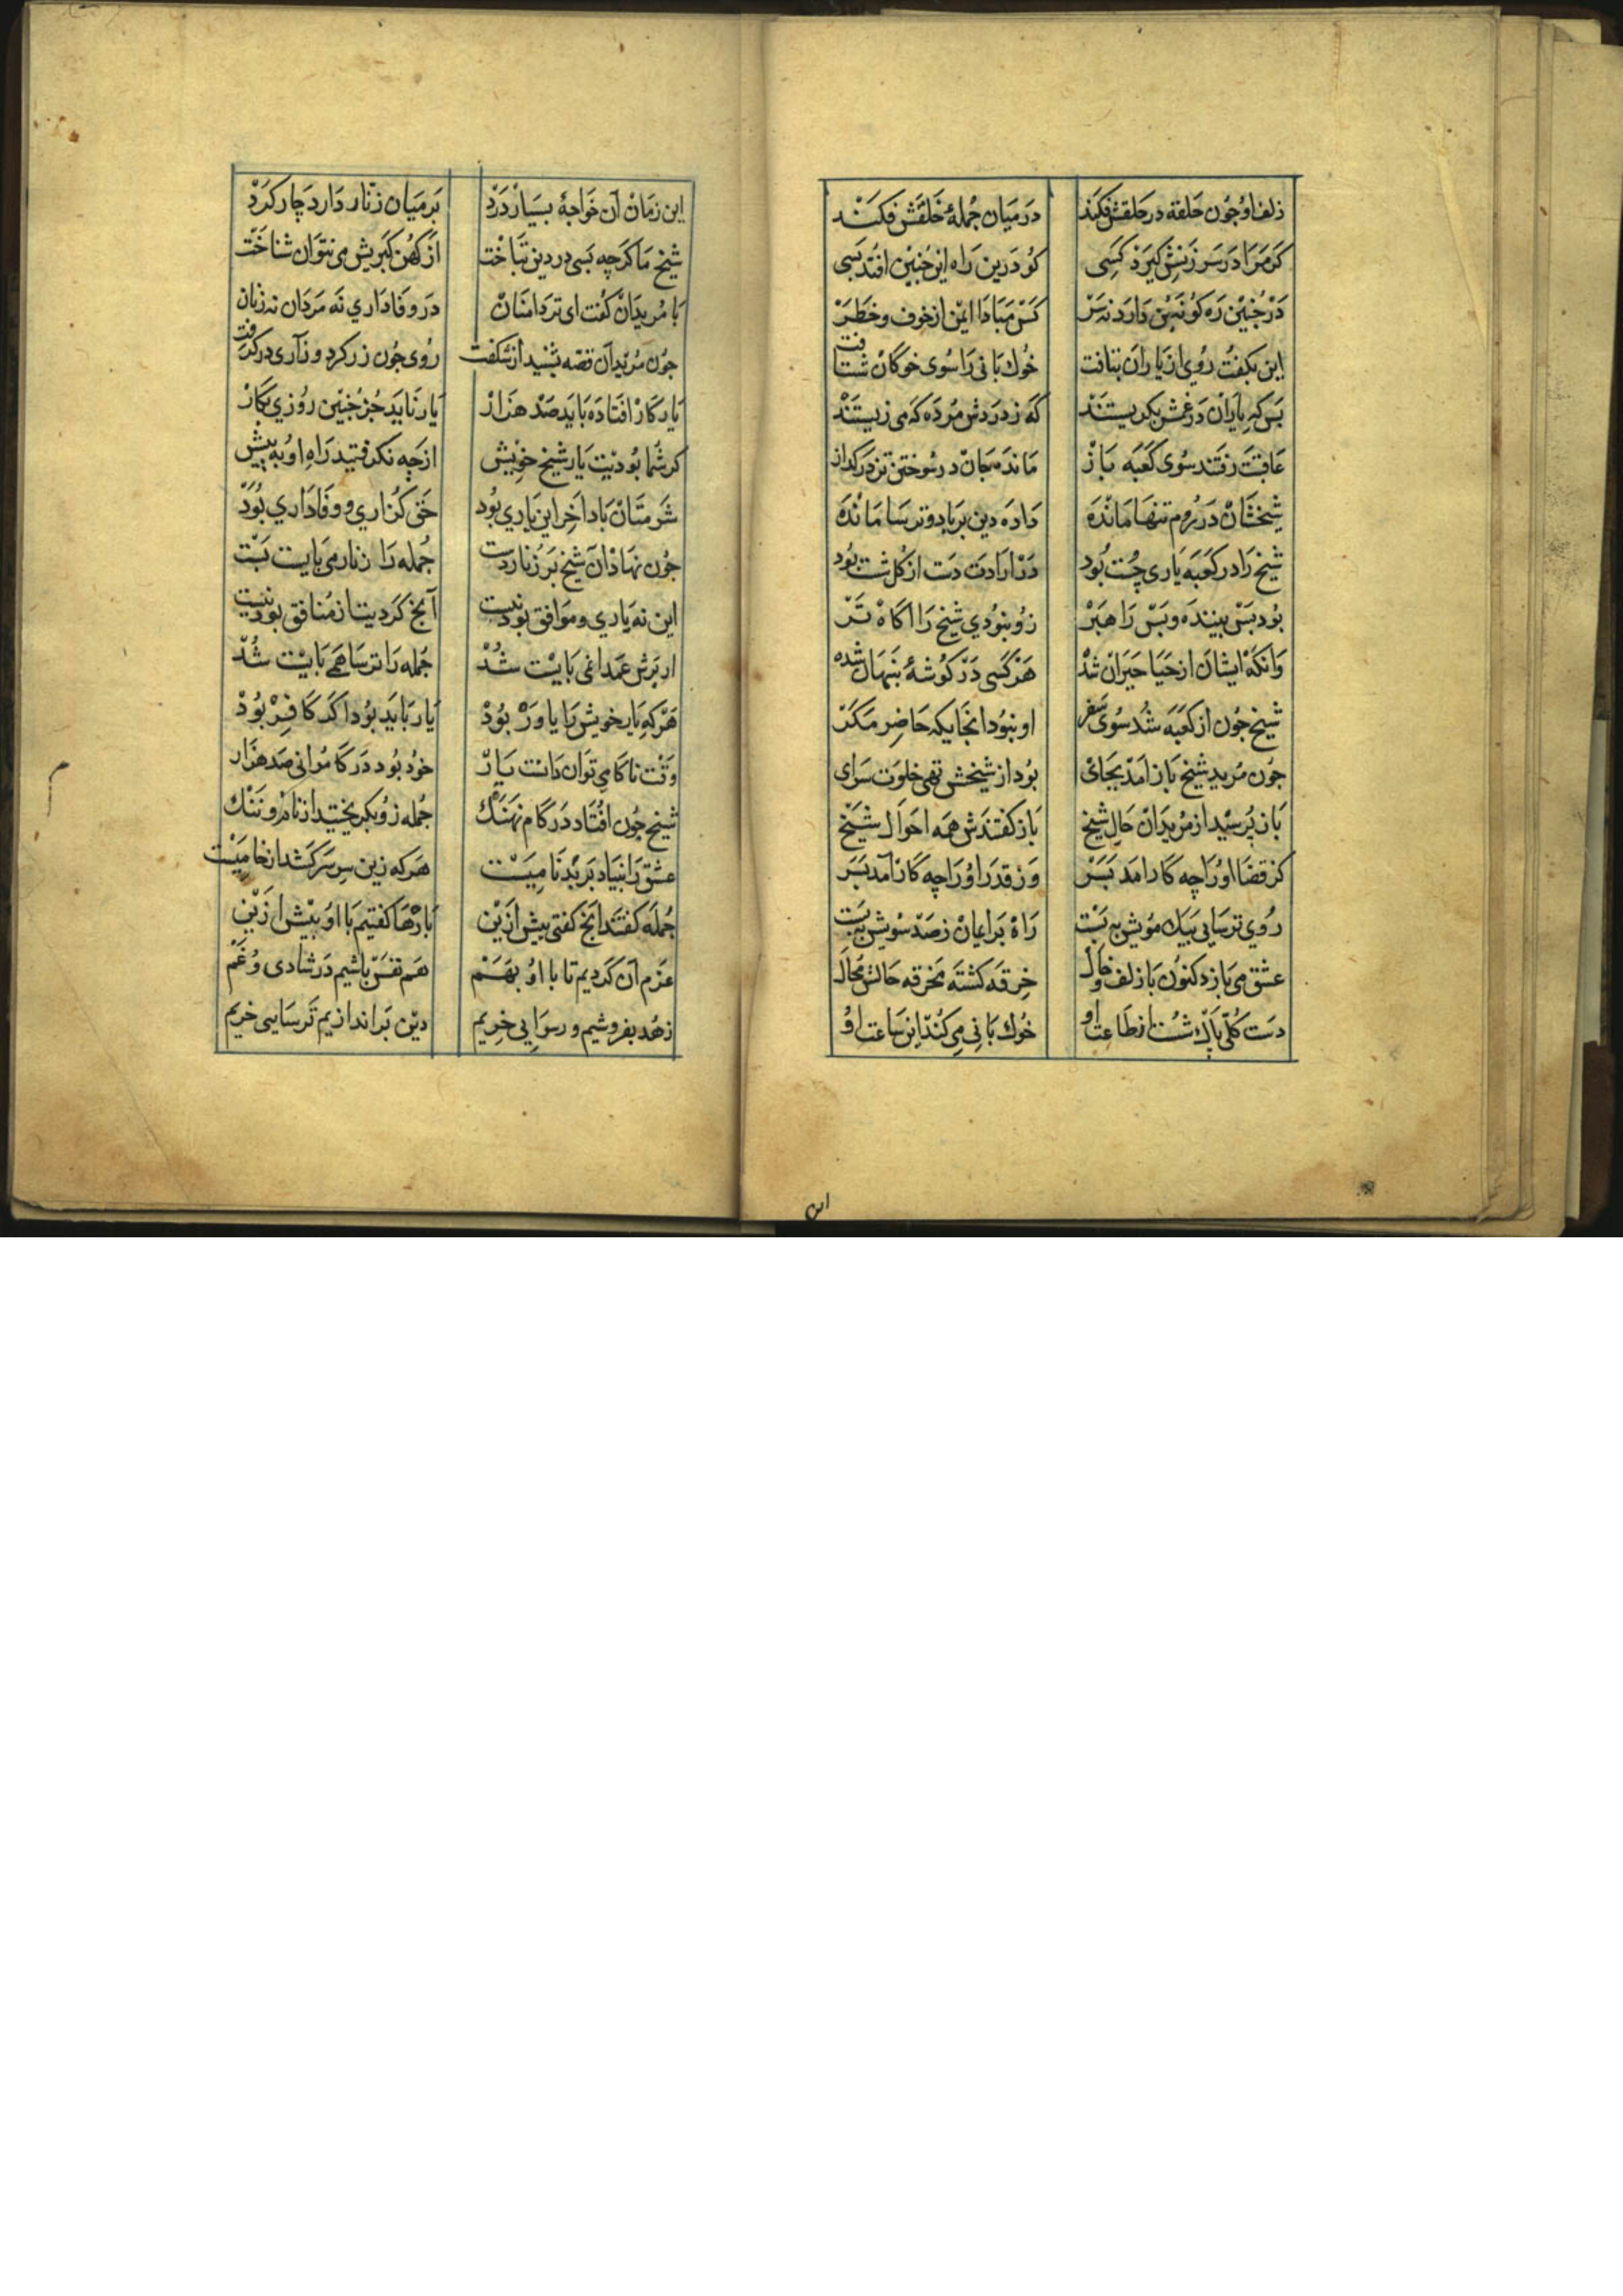 زلف او جون حلقه در حلقش فكند در ميان جملهٔ خلقش فكند
كر مرا در سرزنش كيرد كسى كو درين راه اين جنين افتد بسى
در جنين ره كو نه بن دارد نه سر كس مبادا ايمن از خوف و خطر
اين بكفت روى از ياران بتافت خوك بانى را سوى خوكان شتافت
بس كه ياران در غمش بكريستند كه ز دردش مرده كه مى زيستند
عاقبت رفتند سوى كعبه باز مانده جان در سوختن تن در كداز
شيخشان در روم تنها مانده داده دين بر باد و ترسا مانده
شيخ را در كعبه يارى چست بود در ارادت دست از كل شست بود
بود بس بيننده و بس راهبر زو نبودى شيخ را اكاه تر
وانكه ايشان از حيا حيران شده هر كسى در كوشهٔ بنهان شده
شيخ جون از كعبه شد سوى سفر او نبود انجايكه حاضر مكر
جون مريد شيخ باز امد بجاى بود از شيخش تهى خلوت سراى
باز پرسيد از مريدان حال شيخ باز كفتندش همه احوال شيخ
كز قضا او را چه كار امد بسر وز قدر او را چه كار آمد بسر
روى ترسايى بيك مويش به بست راه بر ايمان ز صد سويش به بست
عشق مى بازد كنون با زلف و خال خرقه كشته مخرقه حالش محال
دست كلى باز شست از طاعت او خوك بانى مى كند اين ساعت او
اين زمان آن خواجهٔ بسيار درد بر ميان زنار دارد چار كرد
شيخ ما كرچه بسى در دين بتاخت از كهن كبريش مى نتوان شناخت
با مريدان كفت اى تردامنان در وفادارى نه مردان نه زنان
جون مريد آن قصه بشنيد از شكفت روى جون زر كرد و زآرى در كرفت
يار كار افتاده بايد صد هزار يار نايد جز جنين روزى بكار
كر شما بوديت يار شيخ خويش از چه نكرفتيد راه او به پيش
شرمتان بادا آخر اين يارى بود حق كزارى و وفادارى بود
جون نهاد آن شيخ بر زنار دست جمله را زنار مى بايست بست
اين نه يارى و موافق بودنيست آنج كرديت از منافق بودنيست
از برش عمدا نمى بايست شد جمله را ترسا همى بايست شد
هر كه يار خويش را ياور بود يار بايد بود اكر كافر بود
وقت ناكامى توان دانست يار خود بود در كامرانى صد هزار
شيخ جون افتاد در كام نهنك جمله زو بكريختيد از نام و ننك
عشق را بنياد بر بدنامى است هر كه زين سر سر كشد از خاميست
جمله كفتند آنج كفتى بيش ازين بارها كفتيم با او بيش ازين
عزم آن كرديم تا با او بهم هم نفس باشيم در شادى و غم
زهد بفروشيم و رسوايى خريم دين براندازيم ترسايى خريم
اين